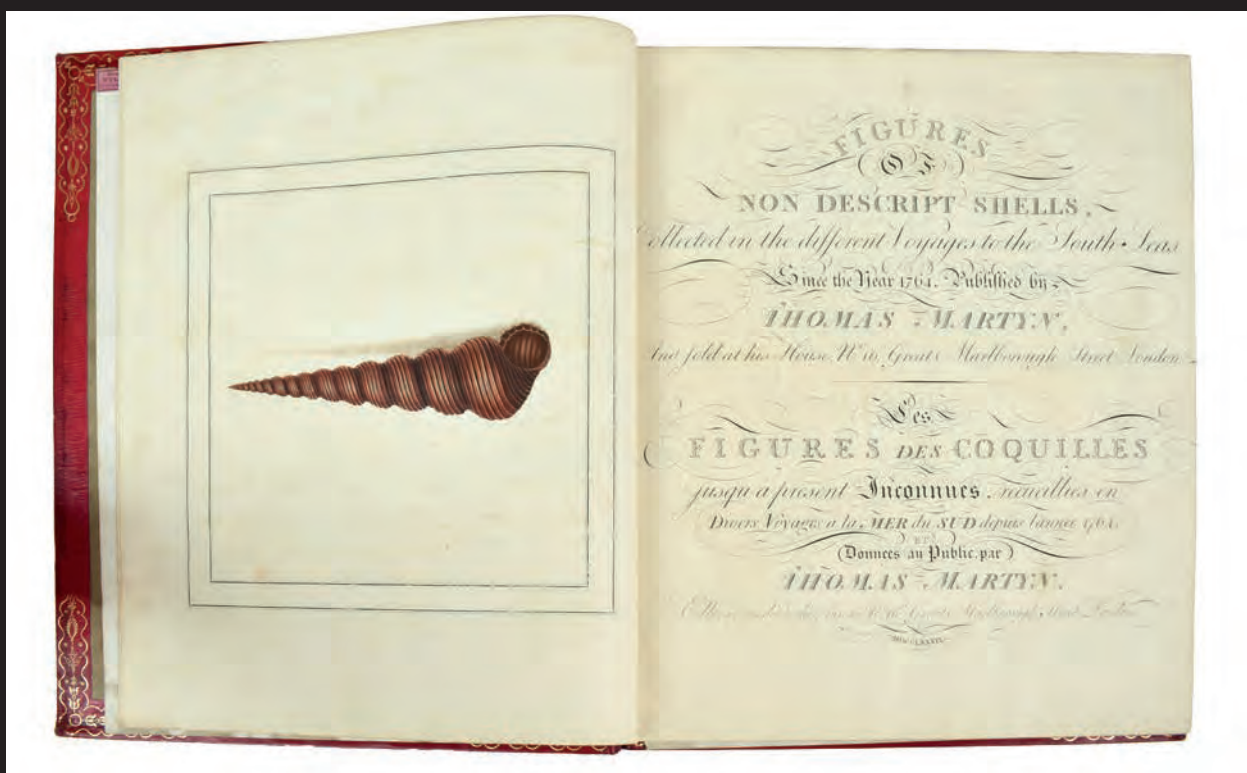 FIGURES
OF
NON DESCRIPT SHELLS,
Collected in the different Voyages to the South Seas
Since the Year 1764. Published by
THOMAS MARTYN,
And sold at his House, No. 16, Great Marlborough Street London
Les
FIGURES DES COQUILLES
jusqu'a present Inconnues, recueillies en
Divers Voyages a la MER du SUD depuis l'année 1764.
ET
(Donnees au Public, par)
THOMAS MARTYN.
Great Marlborough Street London